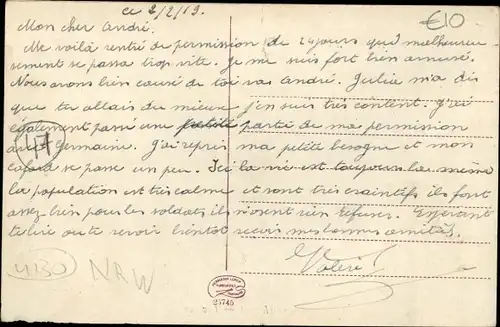 ce 2/2/19.
€10
Mon cher André.
Me voilà rentré de permission de 24 jours qui malheureu
sement se passa trop vite. Je me suis fort bien amusé.
Nous avons bien causé de toi vas André. Julia m'a dis
que tu allais du mieux j'en suis très content. J'ai
également passé une petite partie de ma permission
avec Germaine. J'ai repris ma petite besogne et mon
cafard se passe un peu. Ici la vie est toujours la même
la population est très calme et sont très craintifs ils font
assez bien pour les soldats ils n'osent rien refuser. Espérant
te lire ou te revoir bientôt reçois mes bonnes amitiés.
Valéri
47
4130
NRW
25745